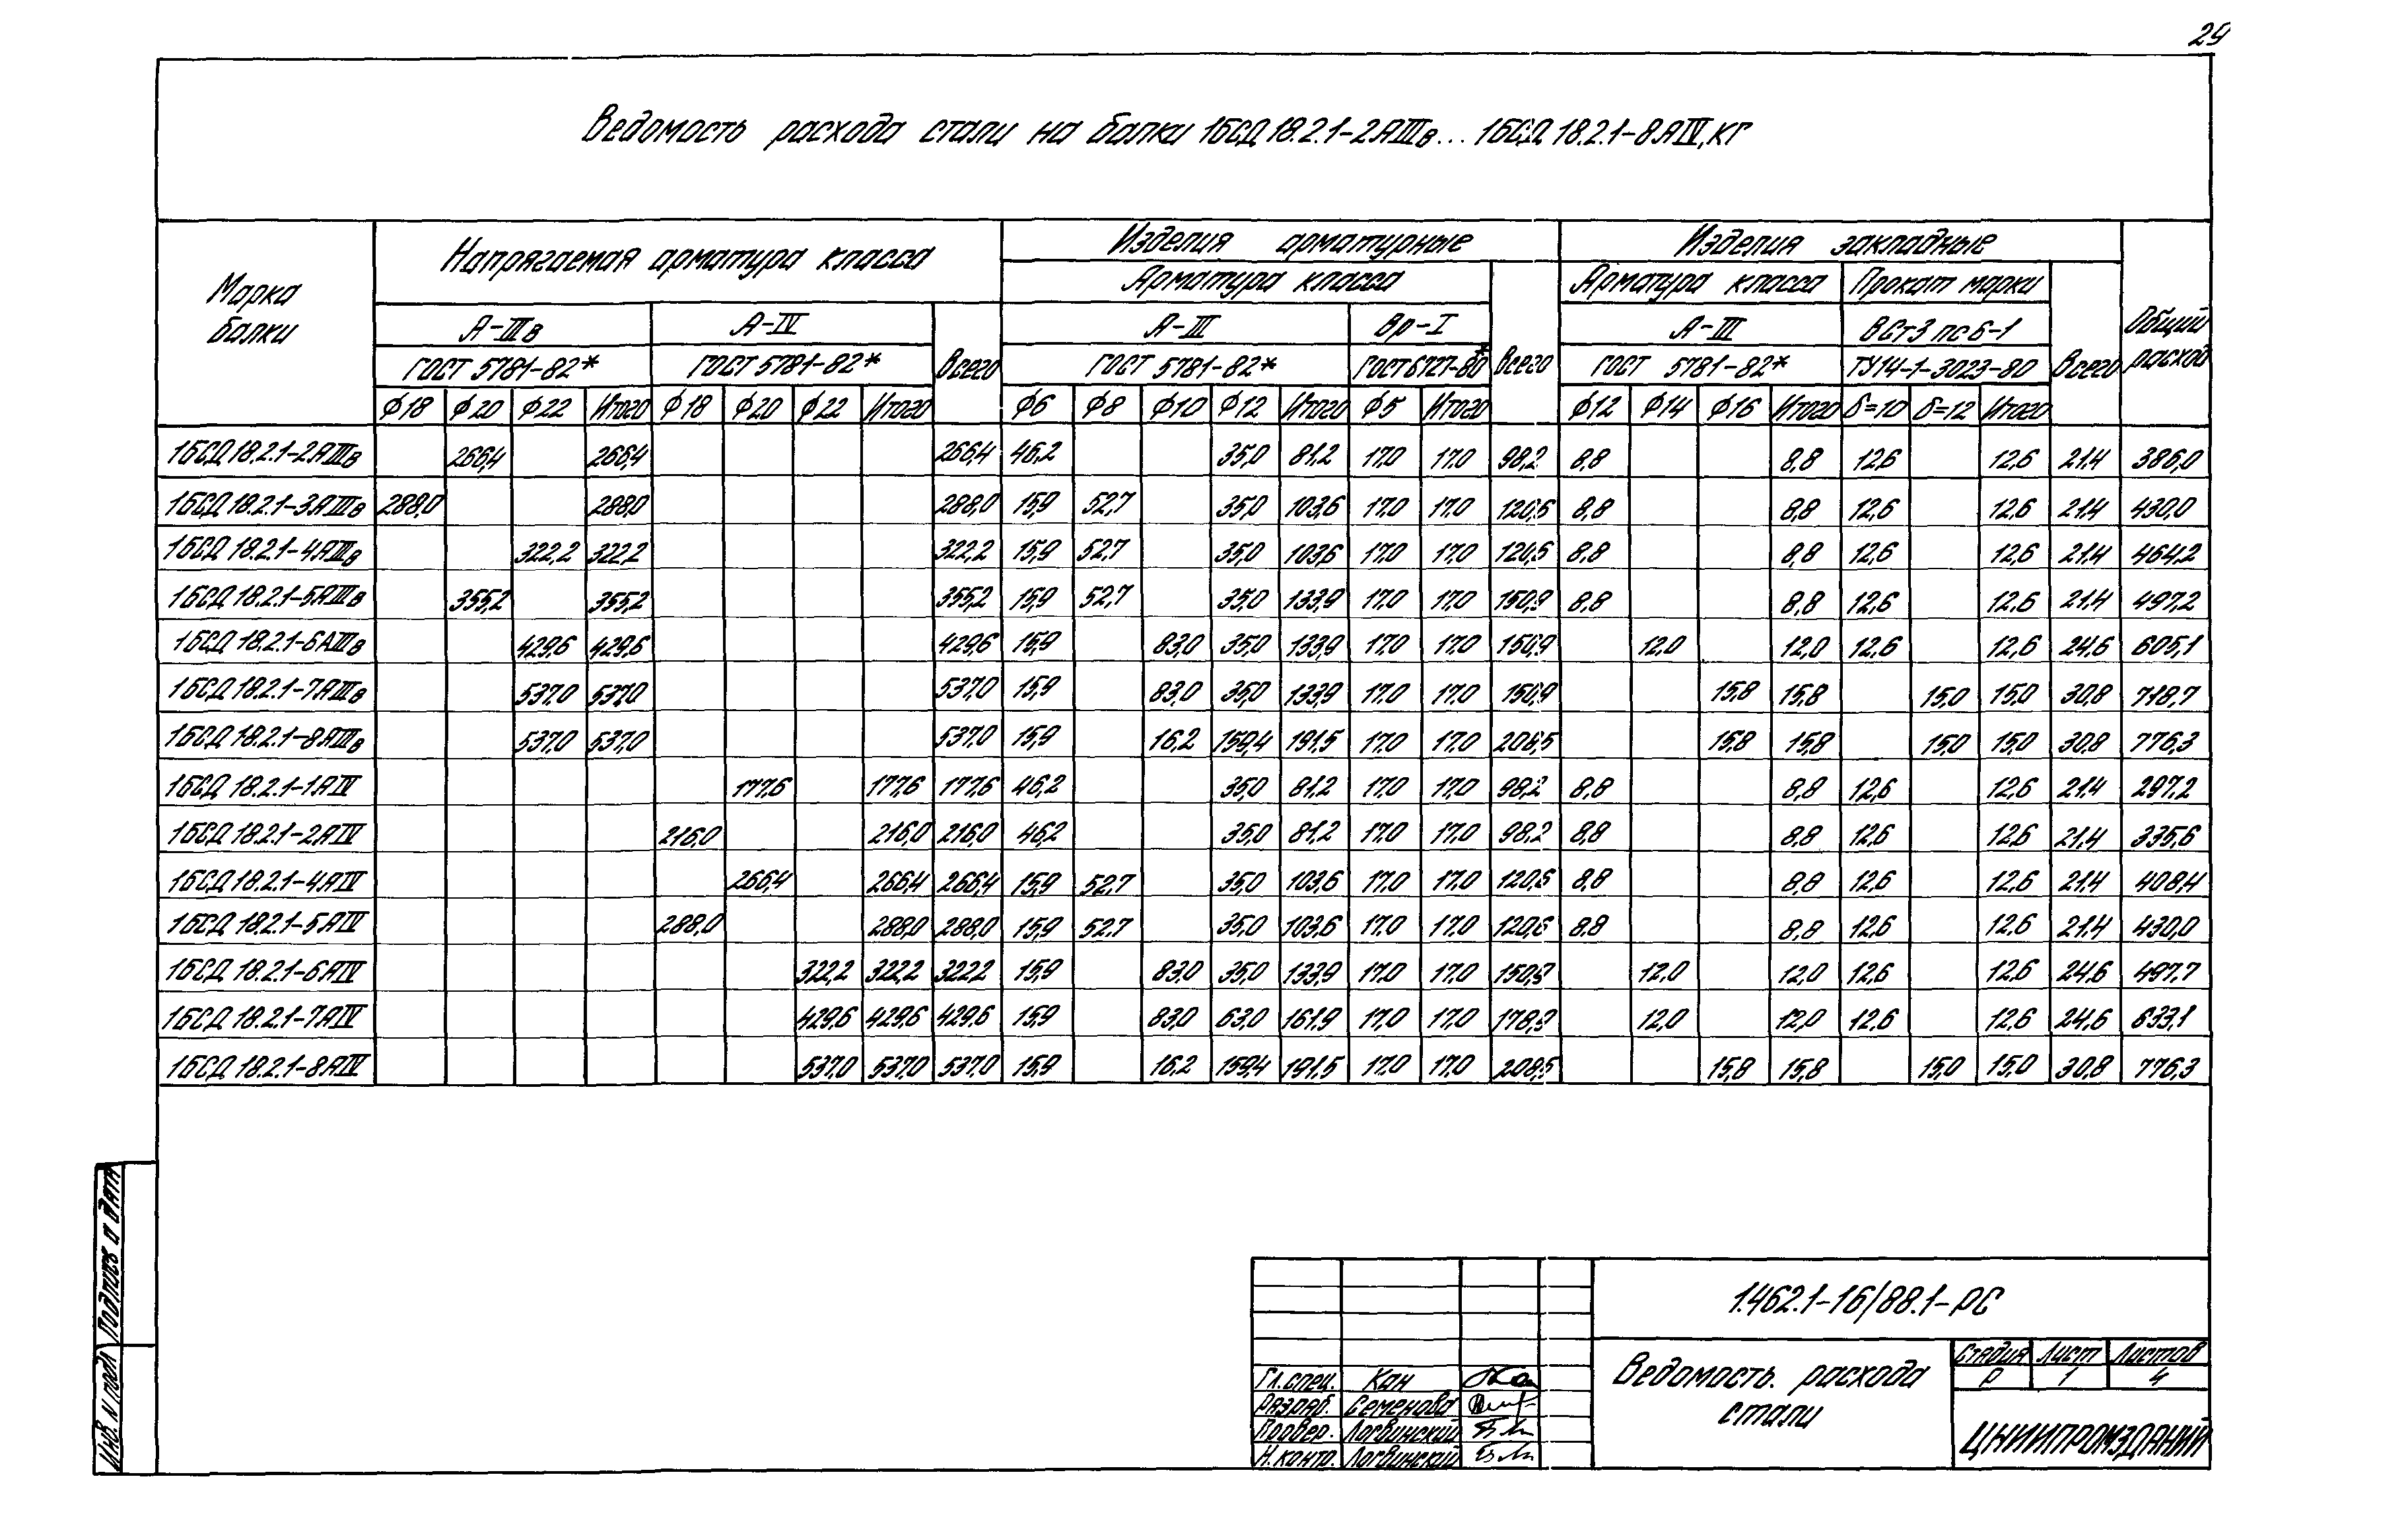 29
Ведомость расхода стали на балки 1БСД18.2.1-2АIIIв...1БСД18.2.1-8АIV, кг
Марка балки
Напрягаемая арматура класса
Изделия арматурные
Изделия закладные
Общий расход
Арматура класса
Всего
Арматура класса
Прокат марки
Всего
А-IIIв
А-IV
Всего
А-III
Вр-I
А-III
ВСт3пс6-1
ГОСТ 5781-82*
ГОСТ 5781-82*
ГОСТ 5781-82*
ГОСТ 6727-80*
ГОСТ 5781-82*
ТУ14-1-3023-80
ф18 ф20 ф22 Итого ф18 ф20 ф22 Итого ф6 ф8 ф10 ф12 Итого ф5 Итого ф12 ф14 ф16 Итого δ=10 δ=12 Итого
1БСД18.2.1-2АIIIв 266,4 266,4 266,4 46,2 35,0 81,2 17,0 17,0 98,2 8,8 8,8 12,6 12,6 21.4 386,0
1БСД18.2.1-3АIIIв 288,0 288,0 288,0 15,9 52,7 35,0 103,6 17,0 17,0 120,6 8,8 8,8 12,6 12,6 21.4 430,0
1БСД18.2.1-4АIIIв 322,2 322,2 322,2 15,9 52,7 35,0 103,6 17,0 17,0 120,6 8,8 8,8 12,6 12,6 21.4 464,2
1БСД18.2.1-5АIIIв 355,2 355,2 355,2 15,9 52,7 35,0 133,9 17,0 17,0 150,9 8,8 8,8 12,6 12,6 21.4 497,2
1БСД18.2.1-6АIIIв 429,6 429,6 429,6 15,9 83,0 35,0 133,9 17,0 17,0 150,9 12,0 12,0 12,6 12,6 24,6 605,1
1БСД18.2.1-7АIIIв 537,0 537,0 537,0 15,9 83,0 35,0 133,9 17,0 17,0 150,9 15,8 15,8 15,0 15,0 30,8 718,7
1БСД18.2.1-8АIIIв 537,0 537,0 537,0 15,9 16,2 159,4 191,5 17,0 17,0 208,5 15,8 15,8 15,0 15,0 30,8 776,3
1БСД18.2.1-1АIV 177,6 177,6 177,6 46,2 35,0 81,2 17,0 17,0 98,2 8,8 8,8 12,6 12,6 21,4 297,2
1БСД18.2.1-2АIV 216,0 216,0 216,0 46,2 35,0 81,2 17,0 17,0 98,2 8,8 8,8 12,6 12,6 21,4 335,6
1БСД18.2.1-4АIV 266,4 266,4 266,4 15,9 52,7 35,0 103,6 17,0 17,0 120,6 8,8 8,8 12,6 12,6 21,4 408,4
1БСД18.2.1-5АIV 288,0 288,0 288,0 15,9 52,7 35,0 103,6 17,0 17,0 120,6 8,8 8,8 12,6 12,6 21,4 430,0
1БСД18.2.1-6АIV 322,2 322,2 322,2 15,9 83,0 35,0 133,9 17,0 17,0 150,9 12,0 12,0 12,6 12,6 24,6 497,7
1БСД18.2.1-7АIV 429,6 429,6 429,6 15,9 83,0 63,0 161,9 17,0 17,0 178,9 12,0 12,0 12,6 12,6 24,6 633,1
1БСД18.2.1-8АIV 537,0 537,0 537,0 15,9 16,2 159,4 191,5 17,0 17,0 208,5 15,8 15,8 15,0 15,0 30,8 776,3
Подпись и дата
Инв. N подл
1.462.1-16/88.1-РС
Ведомость расхода
стали
Стадия Лист Листов
Р 1 4
ЦНИИПРОМЗДАНИЙ
Гл.спец. Кан
Разраб. Семенова
Провер. Логвинский
Н.контр. Логвинский